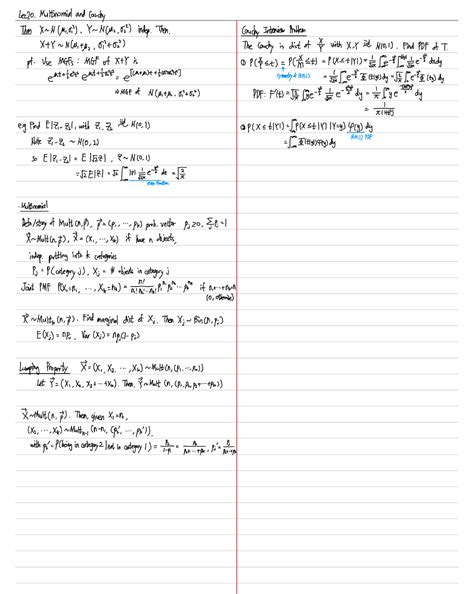 Lec20. Multinomial and Cauchy
Thm X~N(μ₁,σ₁²), Y~N(μ₂,σ₂²) indep. Then,
X+Y ~ N(μ₁+μ₂, σ₁²+σ₂²)
pf. Use MGFs: MGF of X+Y is
→ MGF of N(μ₁+μ₂, σ₁²+σ₂²)
eg Find E|Z₁-Z₂|, with Z₁, Z₂ iid N(0,1)
Note Z₁-Z₂ ~ N(0,2)
so E|Z₁-Z₂| = E|√2Z|, Z~N(0,1)
= √2 E|Z| = √2 ∫ |z| 1/√2π e^(-z²/2) dz = √(2/π)
even function
Multinomial
Defn/story of Mult(n,p⃗), p⃗=(p₁, ⋯, pₖ) prob. vector pⱼ≥0, Σpⱼ=1
X⃗~Mult(n,p⃗), X⃗=(X₁, ⋯, Xₖ) if have n objects,
indep. putting into k categories
Pⱼ = P(category j), Xⱼ = # objects in category j
Joint PMF P(X₁=n₁, ⋯, Xₖ=nₖ) = n!/(n₁!n₂!⋯nₖ!) p₁^n₁ p₂^n₂ ⋯ pₖ^nₖ if n₁+⋯+nₖ=n
(0, otherwise)
X⃗~Multₖ(n,p⃗). Find marginal dist of Xⱼ. Then Xⱼ ~ Bin(n,pⱼ)
E(Xⱼ) = npⱼ, Var(Xⱼ) = npⱼ(1-pⱼ)
Lumping Property X⃗=(X₁, X₂, ⋯, Xₖ) ~ Mult(n, (p₁, ⋯, pₖ))
Let Y⃗ = (X₁, X₂, X₃+⋯+Xₖ). Then, Y⃗~Mult(n, (p₁, p₂, p₃+⋯+pₖ))
X⃗~Mult(n,p⃗). Then, given X₁=n₁,
(X₂, ⋯, Xₖ) ~ Multₖ₋₁(n-n₁, (p₂', ⋯, pₖ'))
with p₂' = P(being in category 2 | not in category 1) = p₂/(1-p₁) = p₂/(p₂+⋯+pₖ)
Cauchy Interview Problem
The Cauchy is dist of X/Y with X,Y iid N(0,1). Find PDF of T.
① P(X/Y≤t) = P(X/|Y|≤t) = P(X≤t|Y|)
symmetry of N(0,1)
PDF: F'(t)
= 1/π(1+t²)
② P(X≤t|Y|) = ∫P(X≤t|Y| | Y=y) φ(y) dy
N(0,1) PDF
= ∫Φ(t|y|)φ(y) dy